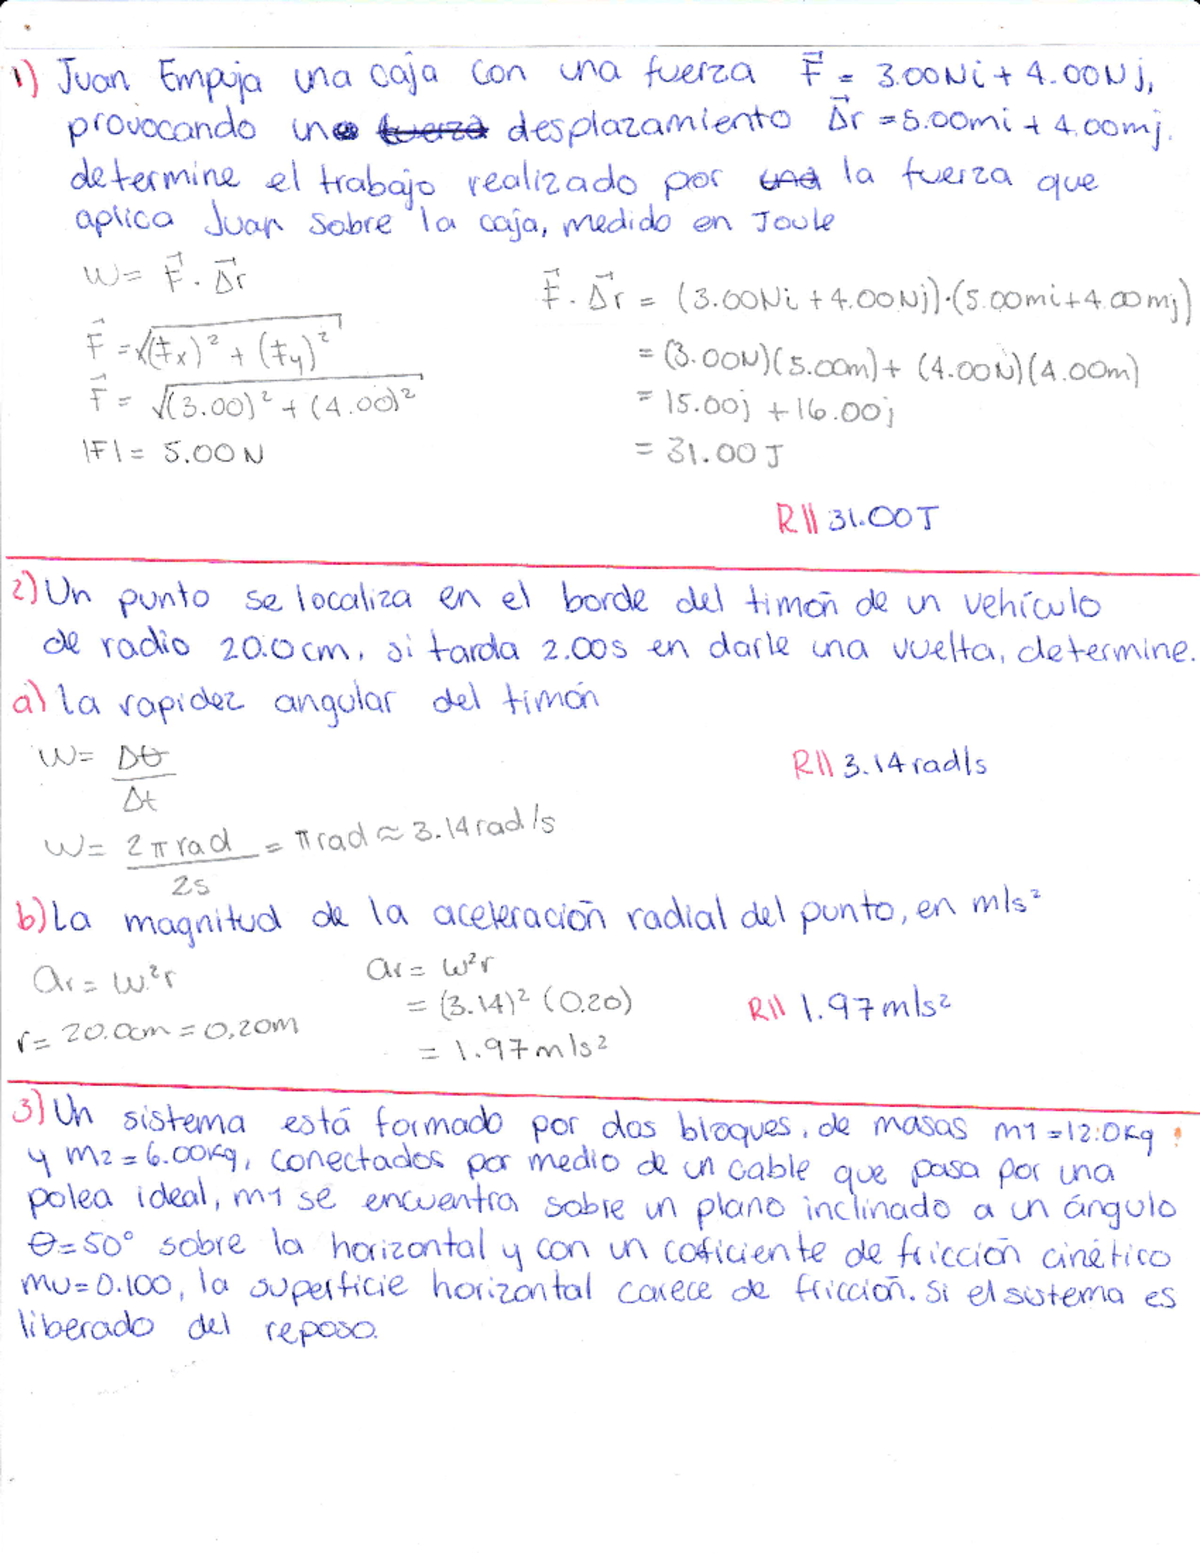 1) Juan Empuja una caja con una fuerza F⃗ = 3.00Ni + 4.00Nj,
provocando un fuerza desplazamiento Δ⃗r = 5.00mi + 4.00mj.
determine el trabajo realizado por una la fuerza que
aplica Juan sobre la caja, medido en Joule
W = F⃗ . Δ⃗r
F⃗ = √(Fx)² + (Fy)²
F⃗ = √(3.00)² + (4.00)²
|F| = 5.00 N
F⃗ . Δ⃗r = (3.00Ni + 4.00Nj)·(5.00mi + 4.00mj)
= (3.00N)(5.00m) + (4.00N)(4.00m)
= 15.00j + 16.00j
= 31.00 J
R\\ 31.00 J
2) Un punto se localiza en el borde del timón de un vehículo
de radio 20.0cm, si tarda 2.00s en darle una vuelta, determine.
a) La rapidez angular del timón
W = Δθ
Δt
R\\ 3.14 rad/s
W = 2π rad = π rad ≈ 3.14 rad/s
2s
b) La magnitud de la aceleración radial del punto, en m/s²
ar = w²r
r = 20.0cm = 0.20m
ar = w²r
= (3.14)² (0.20)
= 1.97 m/s²
R\\ 1.97 m/s²
3) Un sistema está formado por dos bloques, de masas m1 = 12.0kg
y m2 = 6.00kg, conectados por medio de un cable que pasa por una
polea ideal, m1 se encuentra sobre un plano inclinado a un ángulo
θ = 50° sobre la horizontal y con un coficiente de fricción cinético
mu = 0.100, la superficie horizontal carece de fricción. Si el sistema es
liberado del reposo.